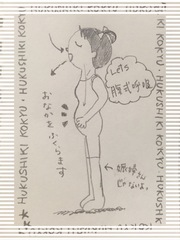 HUKUSHIKI KOKYU・HUKUSHIKI KOKYU
Let's
腹式呼吸
おなかをふくらます
←妊婦さん
じゃないよ。
KI KOKYU HUKUSHIKI KOKYU・HUKUSHIKI